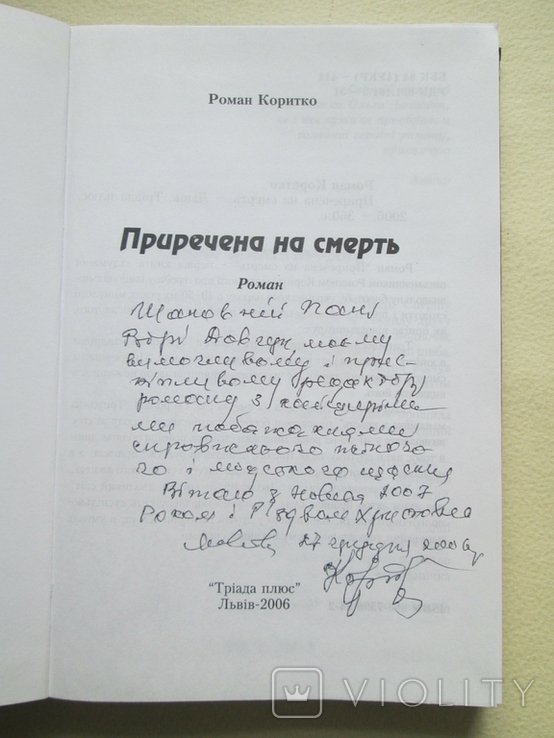 Роман Коритко
Приречена на смерть
Роман
Шановній Пані
Довгун, моєму
вимогливому і
редактору
роману з найщиріши-
ми побажаннями
справжнього
го і людського щастя
Вітаю з Новим 2007
Роком і Різдвом Христовим
Львів 27 грудня 2006
"Тріада плюс"
Львів-2006
VIOLITY